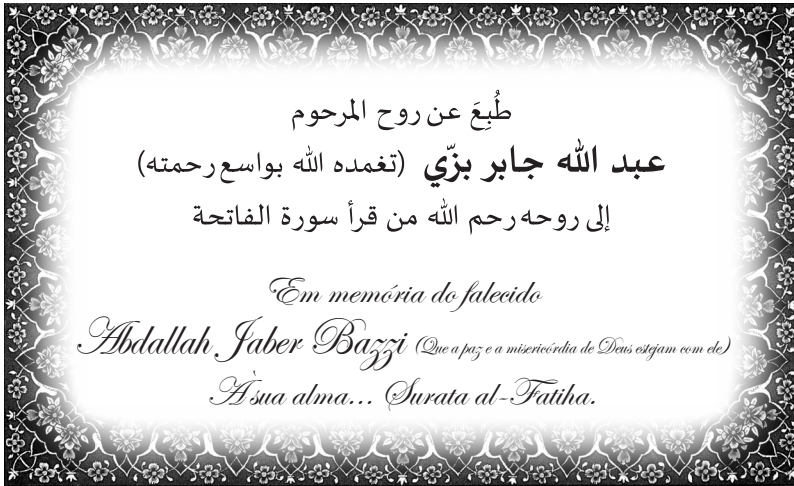 طُبِعَ عن روح المرحوم
عبد الله جابر بزّي (تغمده الله بواسع رحمته)
إلى روحه رحم الله من قرأ سورة الفاتحة
Em memória do falecido
Abdallah Jaber Bazzi (Que a paz e a misericórdia de Deus estejam com ele)
À sua alma... Surata al-Fatiha.